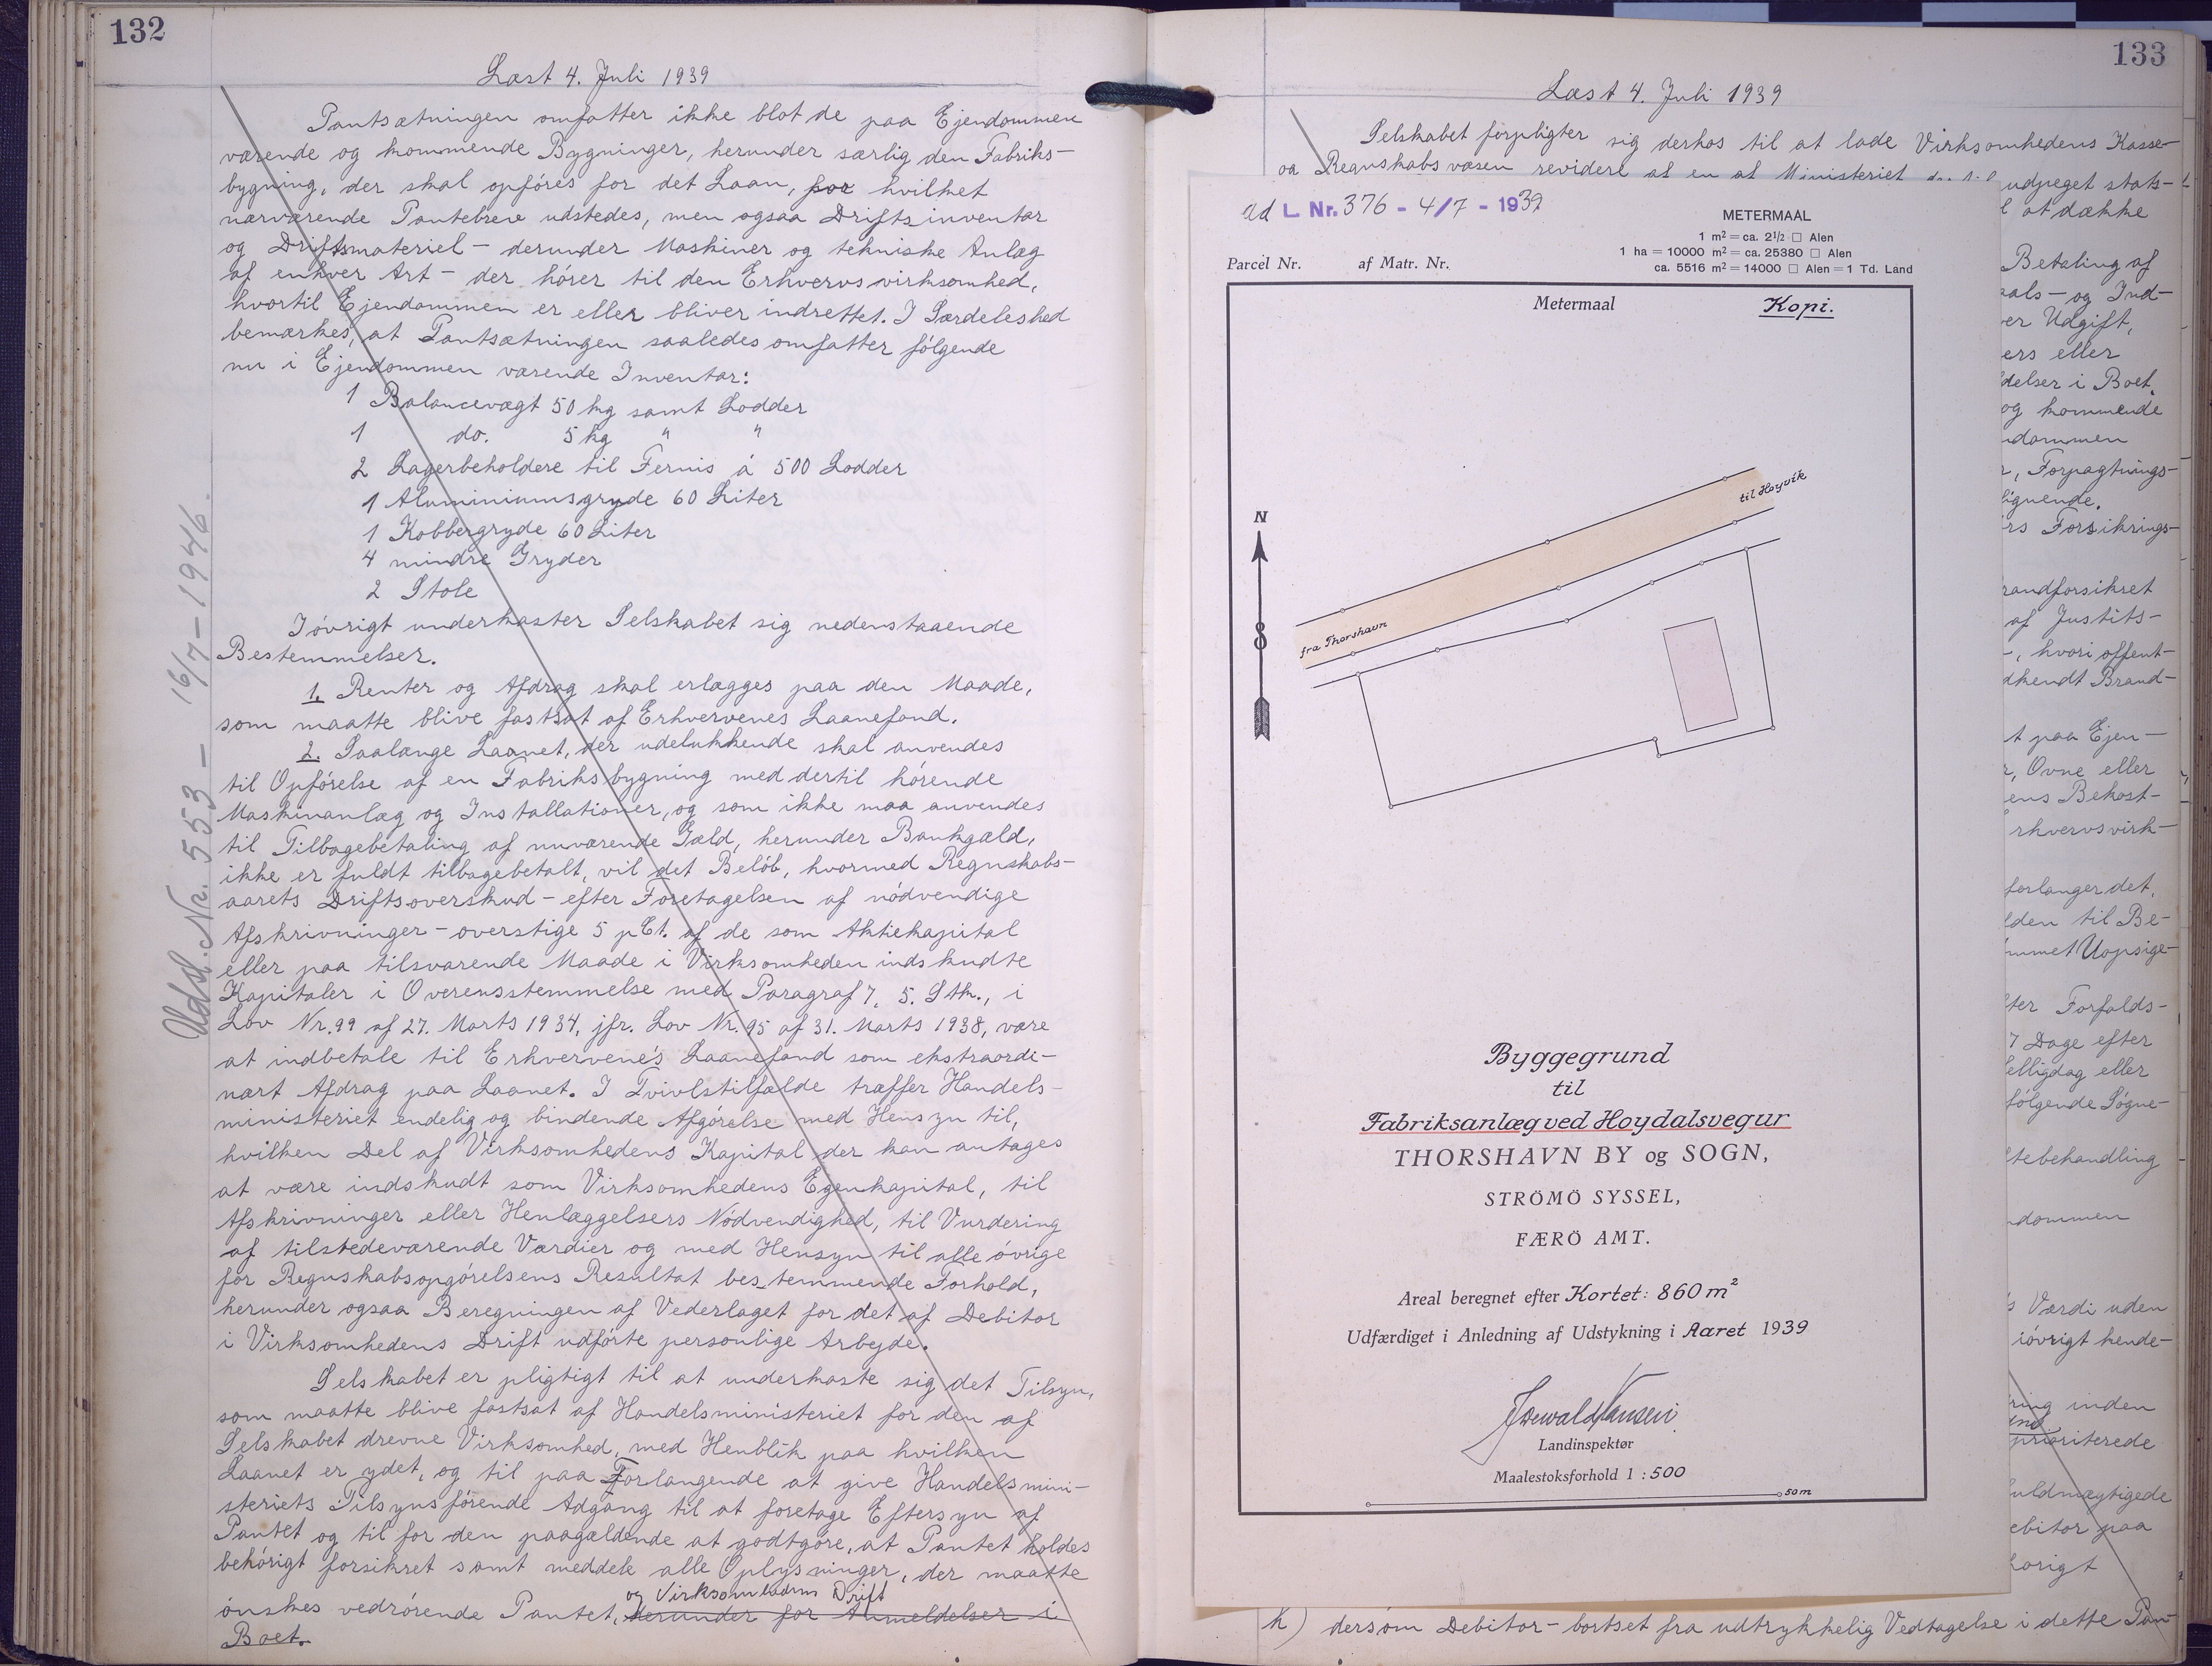 132
Læst 4. Juli 1939
Pantsætningen omfatter ikke blot de paa Ejendommen
værende og kommende Bygninger, herunder særlig den Fabriks-
bygning, der skal opføres for det Laan, for hvilket
nærværende Pantebreve udstedes, men ogsaa Driftsinventar
og Driftsmateriel - derunder Maskiner og tekniske Anlæg
af enhver Art - der hører til den Erhvervsvirksomhed,
hvortil Ejendommen er eller bliver indrettet. I Særdeleshed
bemærkes, at Pantsætningen saaledes omfatter følgende
nu i Ejendommen værende Inventar:
1 Balancevægt 50 kg samt Lodder
1 do. 5 kg " "
2 Lagerbeholdere til Fernis á 500 Lodder
1 Aluminiumsgryde 60 Liter
1 Kobbergryde 60 Liter
4 mindre Gryder
2 Stole
Iøvrigt underkaster Selskabet sig nedenstaaende
Bestemmelser.
1. Renter og Afdrag skal erlægges paa den Maade,
som maatte blive fastsat af Erhvervenes Laanefond.
2. Saalænge Laanet, der udelukkende skal anvendes
til Opførelse af en Fabriksbygning med dertil hørende
Maskinanlæg og Installationer, og som ikke maa anvendes
til Tilbagebetaling af nuværende Gæld, herunder Bankgæld,
ikke er fuldt tilbagebetalt, vil det Beløb, hvormed Regnskabs-
aarets Driftsoverskud - efter Foretagelsen af nødvendige
Afskrivninger - overstige 5 pCt. af de som Aktiekapital
eller paa tilsvarende Maade i Virksomheden indskudte
Kapitaler i Overensstemmelse med Paragraf 7, 5. Stk., i
Lov Nr. 99 af 27. Marts 1934, jfr. Lov Nr. 95 af 31. Marts 1938, være
at indbetale til Erhvervene's Laanefond som ekstraordi-
nært Afdrag paa Laanet. I Tvivlstilfælde træffer Handels-
ministeriet endelig og bindende Afgørelse med Hensyn til,
hvilken Del af Virksomhedens Kapital der kan antages
at være indskudt som Virksomhedens Egenkapital, til
Afskrivninger eller Henlæggelsers Nødvendighed, til Vurdering
af tilstedeværende Værdier og med Hensyn til alle øvrige
for Regnskabsopgørelsens Resultat bestemmende Forhold,
herunder ogsaa Beregningen af Vederlaget for det af Debitor
i Virksomhedens Drift udførte personlige Arbejde.
Selskabet er pligtigt til at underkaste sig det Tilsyn,
som maatte blive fastsat af Handelsministeriet for den af
Selskabet drevne Virksomhed, med Henblik paa hvilken
Laanet er ydet, og til paa Forlangende at give Handelsmini-
steriets Tilsynsførende Adgang til at foretage Eftersyn af
Pantet og til for den paagældende at godtgøre, at Pantet holdes
behørigt forsikret samt meddele alle Oplysninger, der maatte
og Virksomhedens Drift
ønskes vedrørende Pantet, derunder for Anmeldelser i
Boet.
Udsl. Nr. 553 - 16/7 - 1946.
133
Læst 4. Juli 1939
Selskabet forpligter sig derhos til at lade Virksomhedens Kasse-
og Regnskabsvæsen revidere af en af Ministeriet dertil udpeget stats-
at dække
Betaling af
aals- og Ind-
er Udgift,
ers eller
delser i Boet.
og kommende
ndommen
r, Forpagtnings-
lignende.
rs Forsikrings-
randforsikret
af Justits-
-, hvori offent-
dkendt Brand-
t paa Ejen-
r, Ovne eller
ens Bekost-
rhvervsvirk-
forlanger det.
lden til Be-
mmet Uopsige-
ter Forfalds-
7 Dage efter
elligdag eller
følgende Søgne-
tebehandling
ndommen
s Værdi uden
iøvrigt hende-
ring inden
prioriterede
uldmægtigede
ebitor paa
horigt
h) dersom Debitor - bortset fra udtrykkelig Vedtagelse i dette Pan-
ad L. Nr. 376 - 4/7 - 1939
METERMAAL
1 m² = ca. 2 1/2 □ Alen
1 ha = 10000 m² = ca. 25380 □ Alen
ca. 5516 m² = 14000 □ Alen = 1 Td. Land
Parcel Nr. af Matr. Nr.
Metermaal
Kopi.
til Hoyvik
N
fra Thorshavn
S
Byggegrund
til
Fabriksanlæg ved Hoydalsvegur
THORSHAVN BY og SOGN,
STRÖMÖ SYSSEL,
FÆRÖ AMT.
Areal beregnet efter Kortet: 860 m²
Udfærdiget i Anledning af Udstykning i Aaret 1939
Landinspektør
Maalestoksforhold 1 : 500
50 m